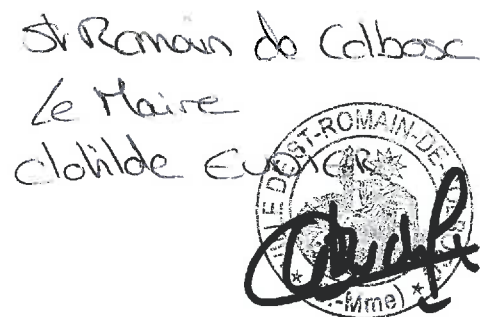 St Romain de Colbosc
Le Maire
Clotilde EUDIER
ST-ROMAIN-DE-
-Mme)